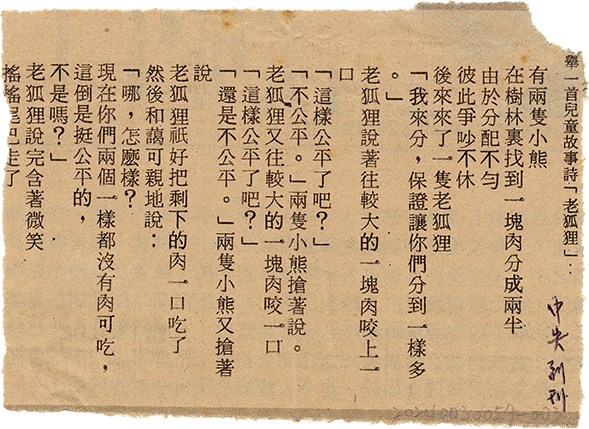 舉一首兒童故事詩「老狐狸」：
有兩隻小熊
在樹林裏找到一塊肉分成兩半
由於分配不勻
彼此爭吵不休
後來來了一隻老狐狸
「我來分，保證讓你們分到一樣多
。」
老狐狸說著往較大的一塊肉咬上一
口
「這樣公平了吧？」
「不公平。」兩隻小熊搶著說。
老狐狸又往較大的一塊肉咬一口
「這樣公平了吧？」
「還是不公平。」兩隻小熊又搶著
說
老狐狸祇好把剩下的肉一口吃了
然後和藹可親地說：
「哪，怎麼樣？
現在你們兩個一樣都沒有肉可吃，
這倒是挺公平的，
不是嗎？」
老狐狸說完含著微笑
搖搖尾巴走了
中央副刊
20240030057-003